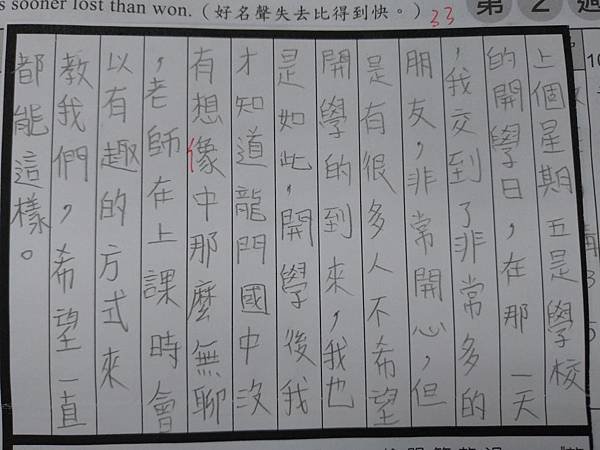 s sooner lost than won.（好名聲失去比得到快。）
33
第2週
上個星期五是學校
的開學日，在那一天
，我交到了非常多的
朋友，非常開心，但
是有很多人不希望
開學的到來，我也
是如此，開學後我
才知道龍門國中沒
有想像中那麼無聊
，老師在上課時會
以有趣的方式來
教我們，希望一直
都能這樣。